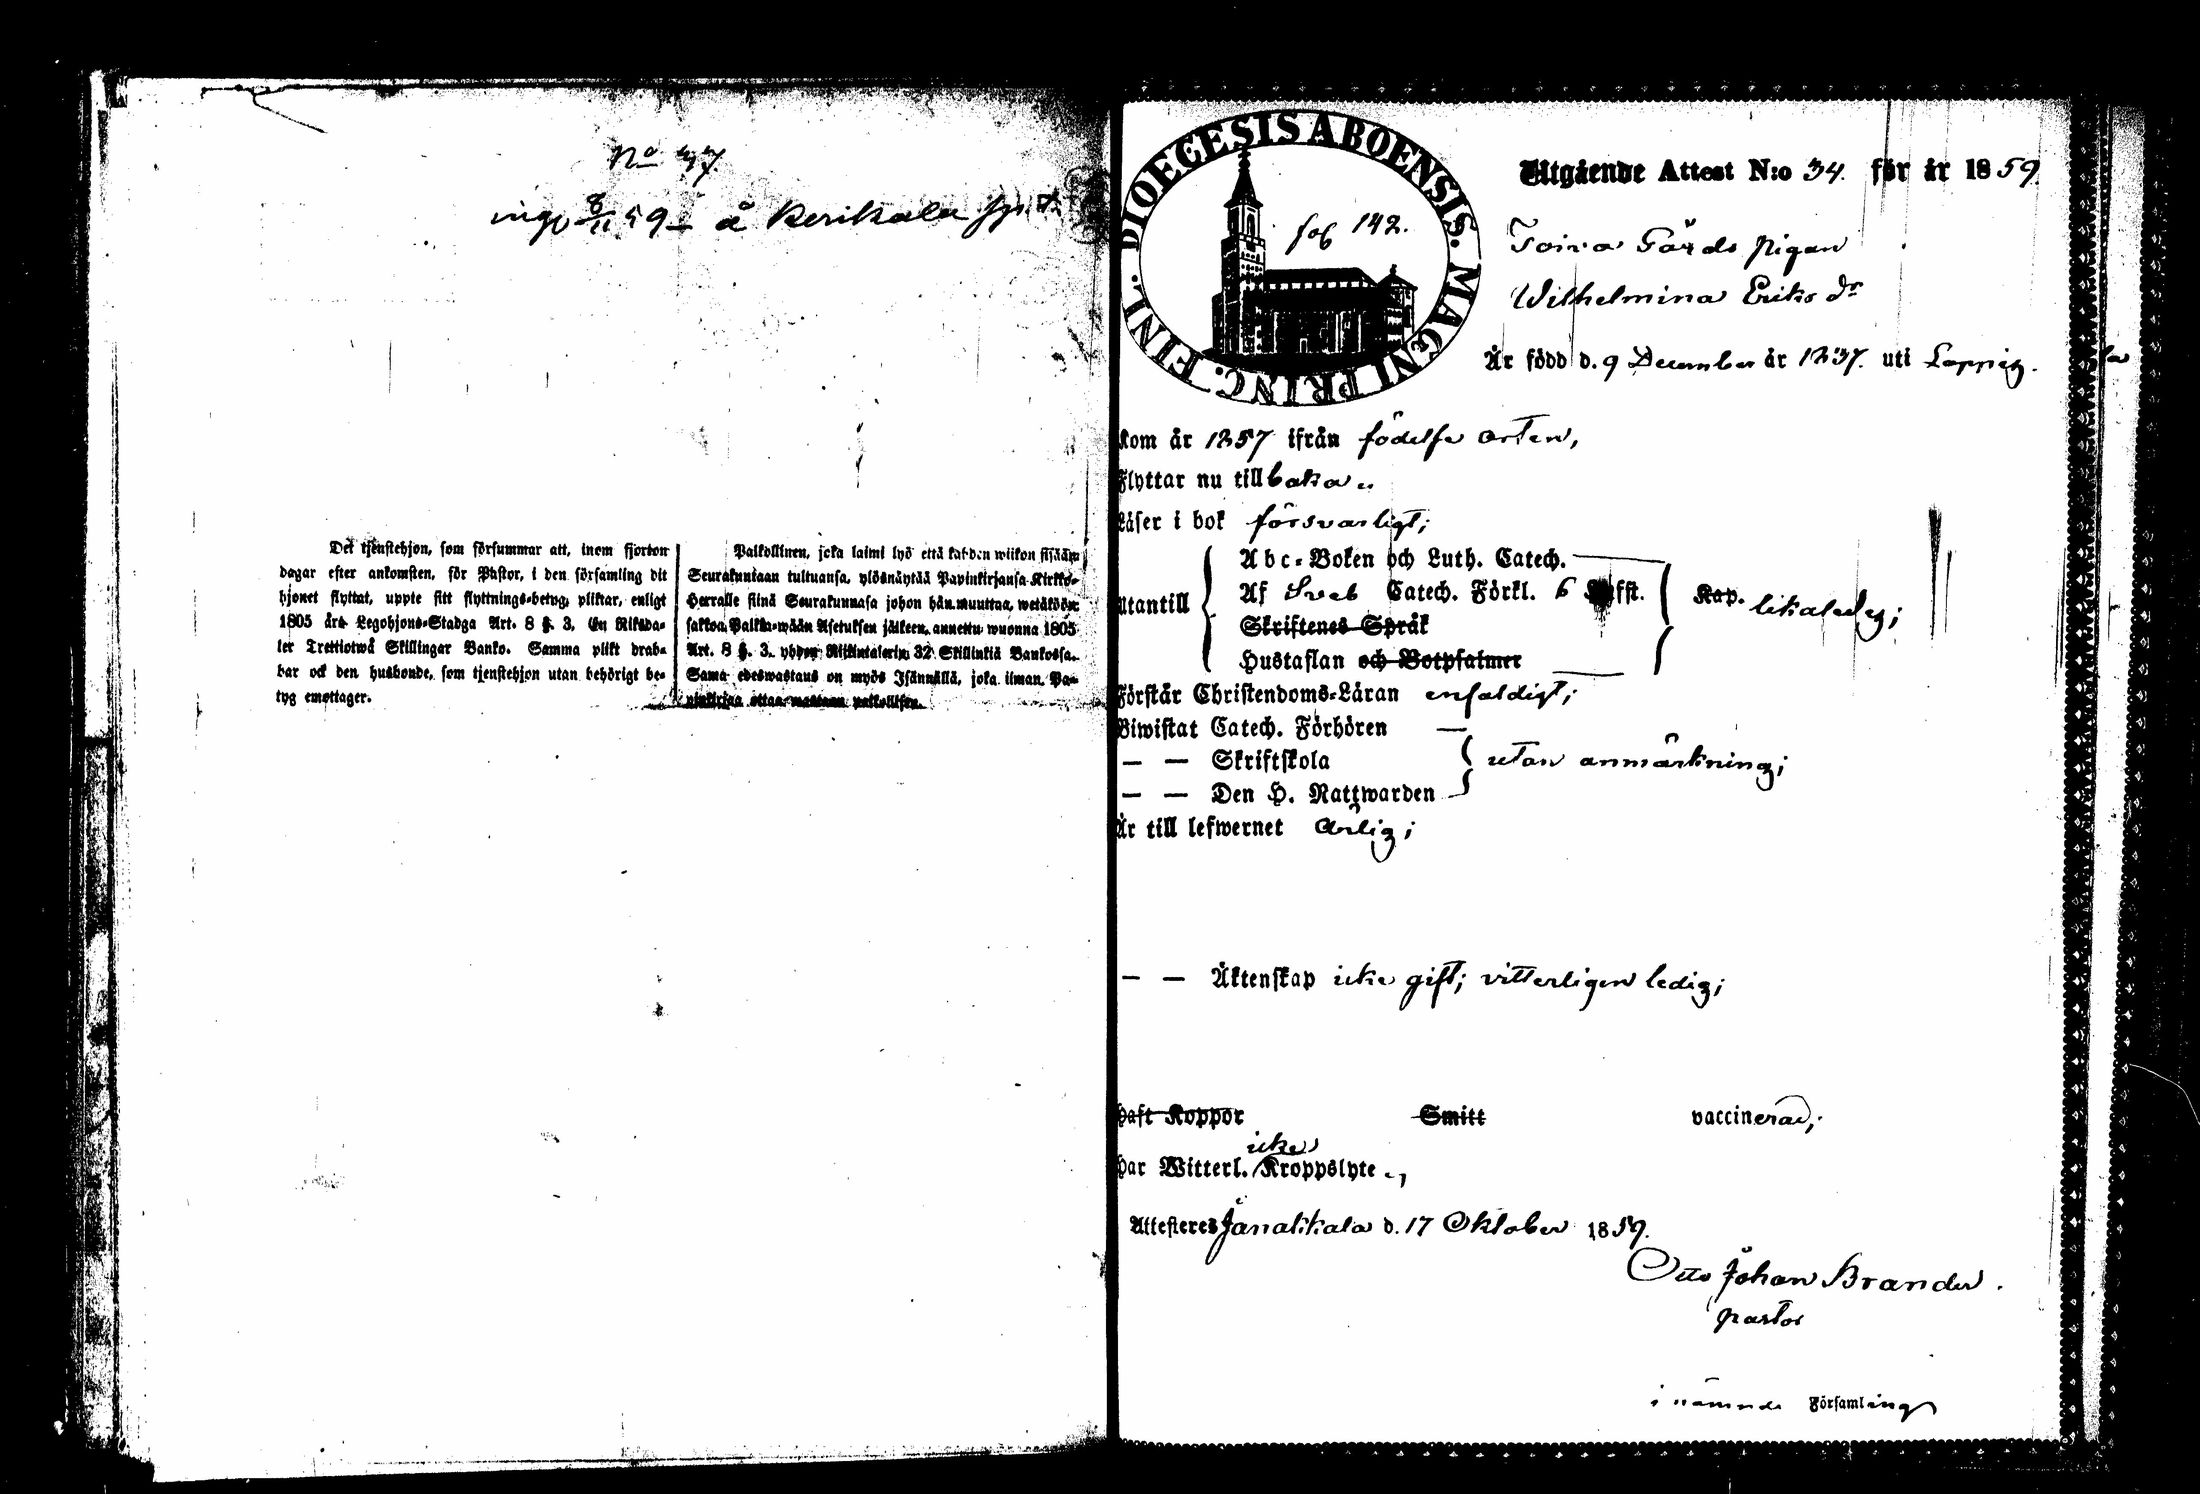 No 47.
ingo 8/11 59 å Kerikala
Det tjenstehjon, som försummar att, inom fjorton
dagar efter ankomsten, för Pastor, i den församling dit
hjonet flyttat, uppte sitt flyttnings-betyg, pliktar, enligt
1805 års Legohjons-Stadga Art. 8 §. 3. En Riksda-
ler Trettiotwå Skillingar Banko. Samma plikt drab-
bar ock den husbonde, som tjenstehjon utan behörigt be-
tyg emottager.
Palkollinen, joka laimi lyö että kahden wiikon sisään
Seurakuntaan tultuansa, ylösnäyttää Papinkirjansa Kirkko-
Herralle siinä Seurakunnasa johon hän muuttaa, wetäköön
sakkoa Palkka-wään Asetuksen jälkeen, annettu wuonna 1805
Art. 8 §. 3. yhden Riikintalerin 32 Skillinkiä Bankossa.
Sama edeswastaus on myös Isännällä, joka ilman Pa-
pinkirjaa ottaa wastaan palkollisen.
DIOECESIS ABOENSIS. MAGNI PRINC. FINL.
fol 142.
Utgående Attest N:o 34. för år 1859.
Toivo Gårds pigan
Wilhelmina Eriks dr
Är född d. 9 December år 1837. uti Loppis.
Kom år 1857 ifrån födelse orten,
Flyttar nu tillbaka
Läser i bok försvarligt;
Abc-Boken och Luth. Catech.
Utantill Af Sveb Catech. Förkl. 6 Kap. likaledes;
Skriftenes Språk
Hustaflan och Botpsalmer
Förstår Christendoms-Läran enfaldigt;
Biwistat Catech. Förhören —
— — Skriftskola utan anmärkning;
— — Den H. Nattwarden
Är till lefwernet ärlig;
— — Äktenskap icke gift; vitterligen ledig;
Haft Koppor Smitt vaccinerad;
icke
Har Witterl. Kroppslyte
Attesteres Janakkala d. 17 Oktober 1859.
Otto Johan Brander.
pastor
i nämnde Församling